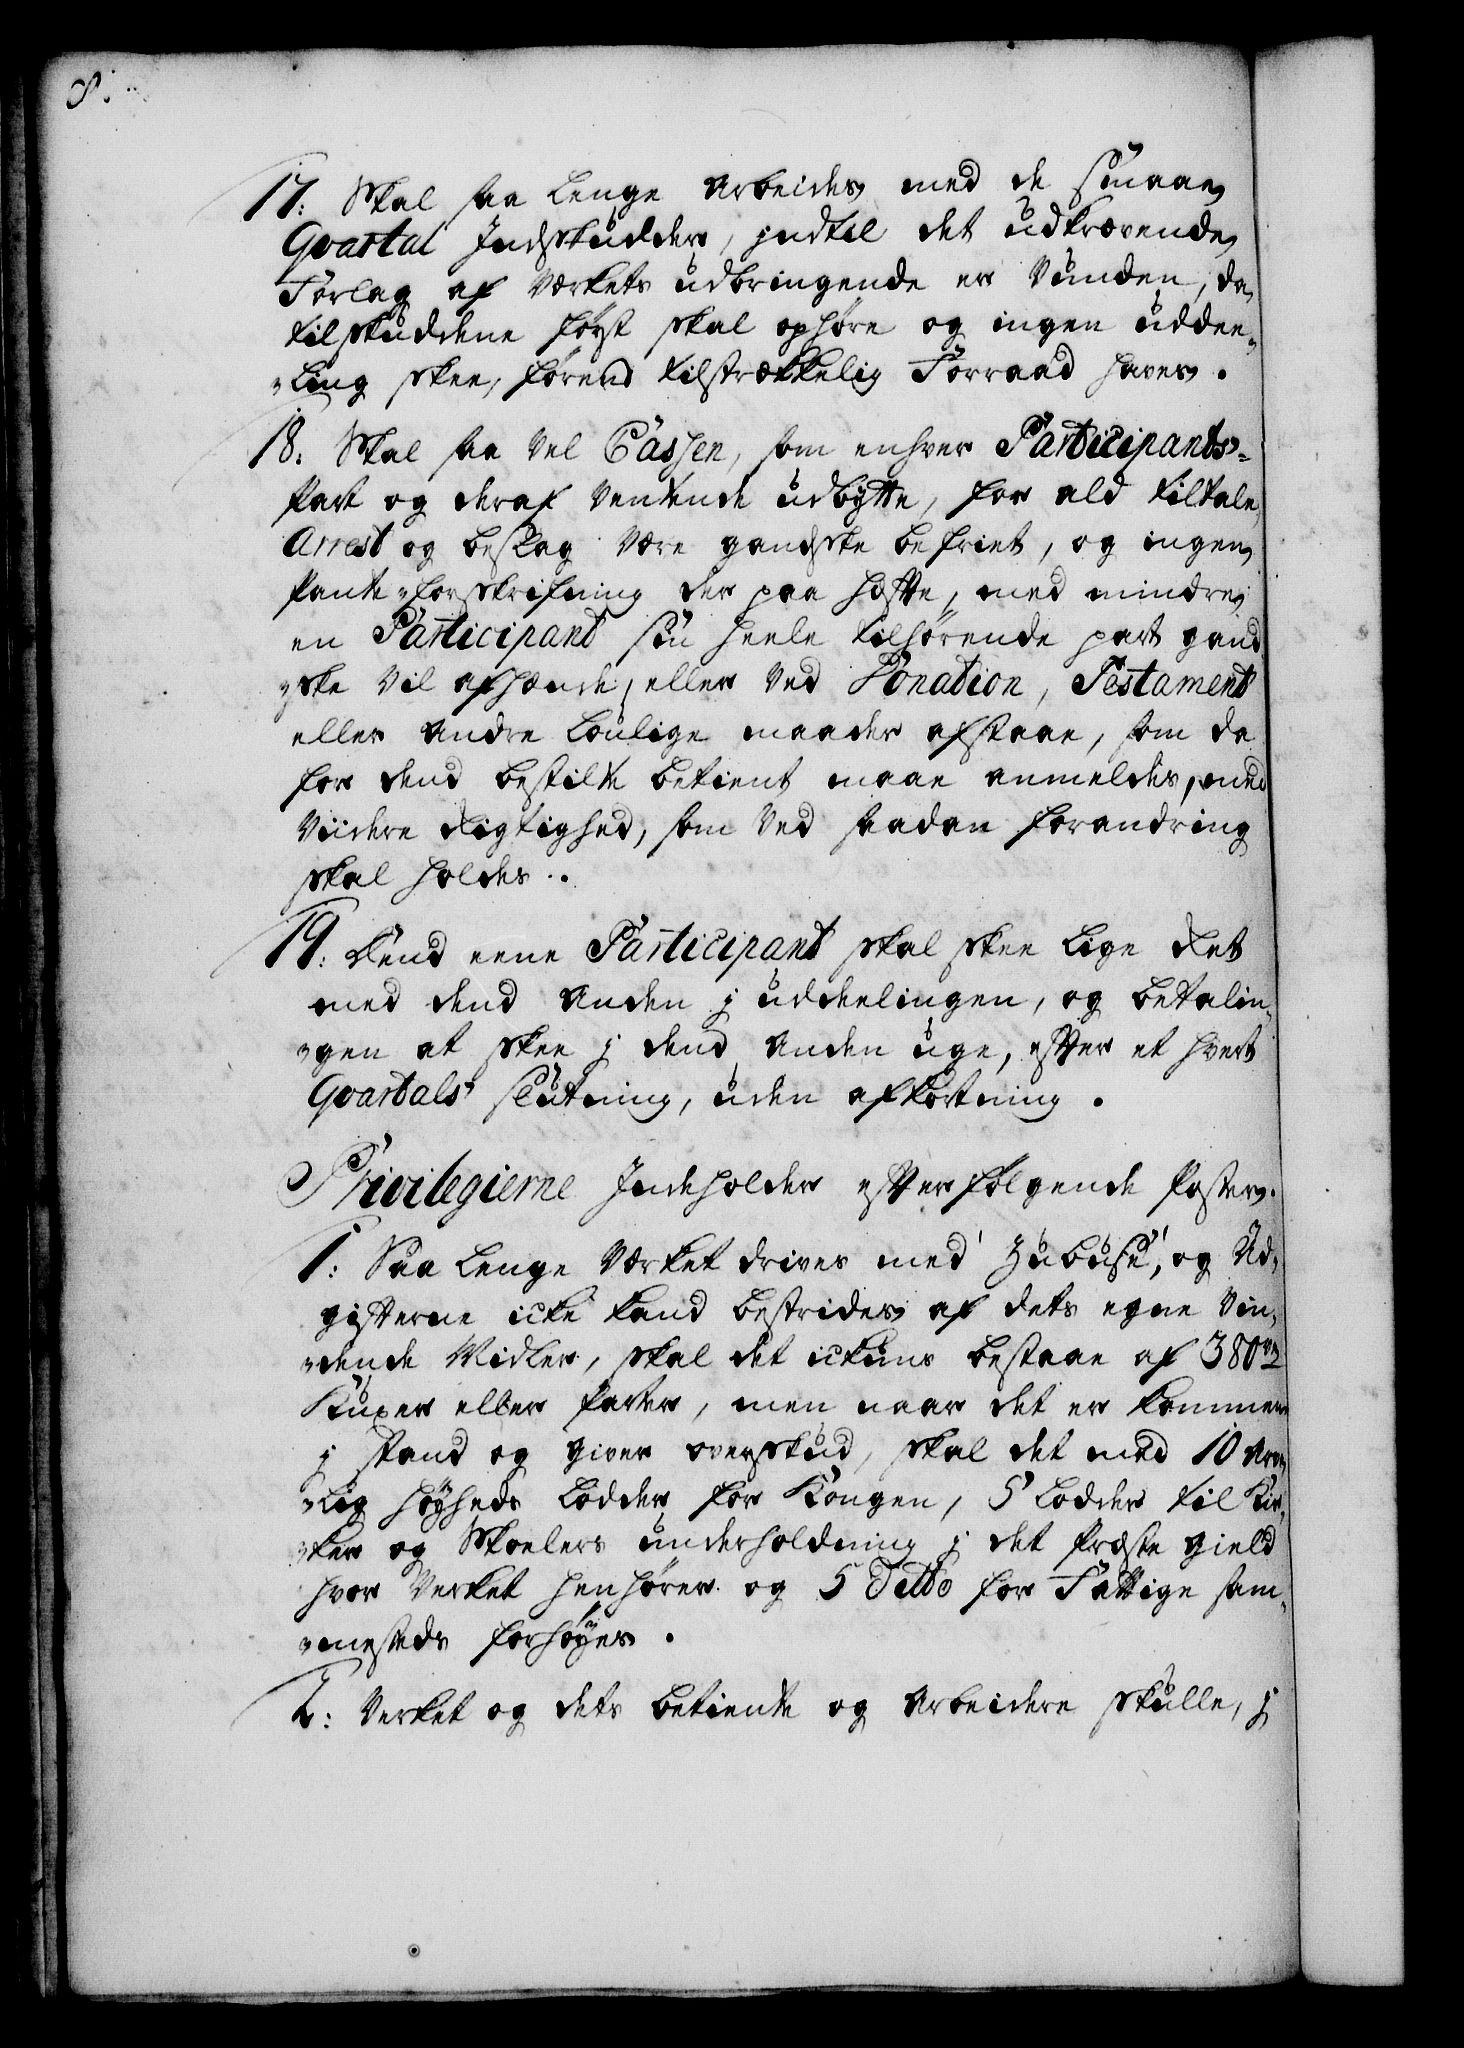 8.
17. Skal saa lenge Arbeides med de smaae
Qvartal Indskudder, indtil det udkrævende
Forlag af Værkets udbringende er Vunden, da
tilskuddene først skal ophøre og ingen uddee-
ling skee, førend tilstrækkelig Forraad haves.
18. Skal saa vel Cassen, som enhver Participants
Part og deraf ventende udbytte, for ald tiltale,
Arrest og beslag være gandske befriet, og ingen
Pante-forskrifning der paa hæfte, med mindre
en Participant sin heele tilhørende part gand
ske vil afhænde, eller ved Donation, Testament
eller andre loulige maader afstaae, som da
for dend bestilte betient maae anmeldes, med
viidere Rigtighed, som ved saadan forandring
skal holdes..
19. Dend eene Participant skal skee lige Ret
med dend Anden j uddeelingen, og betalin-
gen at skee j dend Anden uge, efter et hvert
Qvartals slutning, uden afkortning.
Privilegierne Indeholder efterfølgende Poster.
1: Saa lenge Værket drives med Zubuse, og Ud-
gifterne icke kand bestrides af dets egne Vin-
dende Midler, skal det ickuns bestaae af 380
Kuxer eller Parter, men naar det er kommen
j stand og giver overskud, skal det med 10 Arve
lig høyheds lodder for Kongen, 5 lodder til Kir-
ker og Skoelers underholdning j det Præste gield
hvor Verket henhører og 5 Ditto for Fattige sam-
mesteds forhøyes.
2: Verket og dets betiente og Arbeidere skulle, j